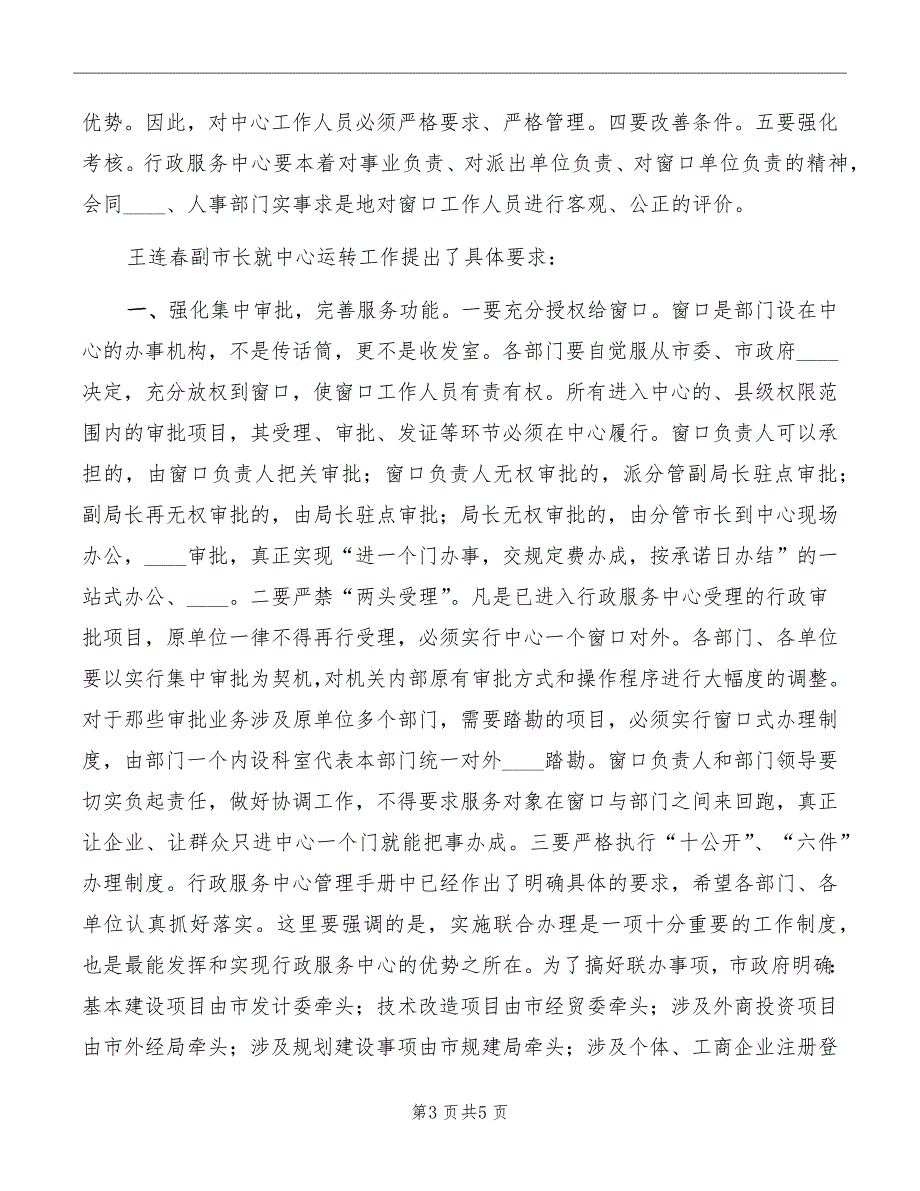 优势。因此，对中心工作人员必须严格要求、严格管理。四要改善条件。五要强化
考核。行政服务中心要本着对事业负责、对派出单位负责、对窗口单位负责的精神，
会同____、人事部门实事求是地对窗口工作人员进行客观、公正的评价。
王连春副市长就中心运转工作提出了具体要求：
一、强化集中审批，完善服务功能。一要充分授权给窗口。窗口是部门设在中
心的办事机构，不是传话筒，更不是收发室。各部门要自觉服从市委、市政府____
决定，充分放权到窗口，使窗口工作人员有责有权。所有进入中心的、县级权限范
围内的审批项目，其受理、审批、发证等环节必须在中心履行。窗口负责人可以承
担的，由窗口负责人把关审批；窗口负责人无权审批的，派分管副局长驻点审批；
副局长再无权审批的，由局长驻点审批；局长无权审批的，由分管市长到中心现场
办公，____审批，真正实现“进一个门办事，交规定费办成，按承诺日办结”的一
站式办公、____。二要严禁“两头受理”。凡是已进入行政服务中心受理的行政审
批项目，原单位一律不得再行受理，必须实行中心一个窗口对外。各部门、各单位
要以实行集中审批为契机，对机关内部原有审批方式和操作程序进行大幅度的调整。
对于那些审批业务涉及原单位多个部门，需要踏勘的项目，必须实行窗口式办理制
度，由部门一个内设科室代表本部门统一对外____踏勘。窗口负责人和部门领导要
切实负起责任，做好协调工作，不得要求服务对象在窗口与部门之间来回跑，真正
让企业、让群众只进中心一个门就能把事办成。三要严格执行“十公开”、“六件”
办理制度。行政服务中心管理手册中已经作出了明确具体的要求，希望各部门、各
单位认真抓好落实。这里要强调的是，实施联合办理是一项十分重要的工作制度，
也是最能发挥和实现行政服务中心的优势之所在。为了搞好联办事项，市政府明确：
基本建设项目由市发计委牵头；技术改造项目由市经贸委牵头；涉及外商投资项目
由市外经局牵头；涉及规划建设事项由市规建局牵头；涉及个体、工商企业注册登
第3 页共5 页